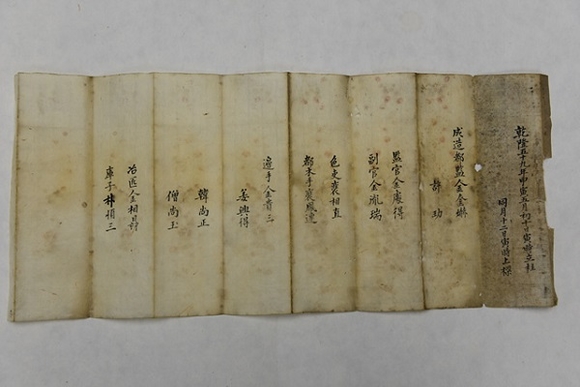 乾隆五十九年甲寅五月初十日寅時立柱
同月十二日寅時上樑
成造都監金金琳
許功
監官金慶得
副官金胤瑞
色吏裵相直
都木手裵鳳達
邊手金貴三
姜興得
韓尚正
僧尚玉
冶匠金相
庫子 三